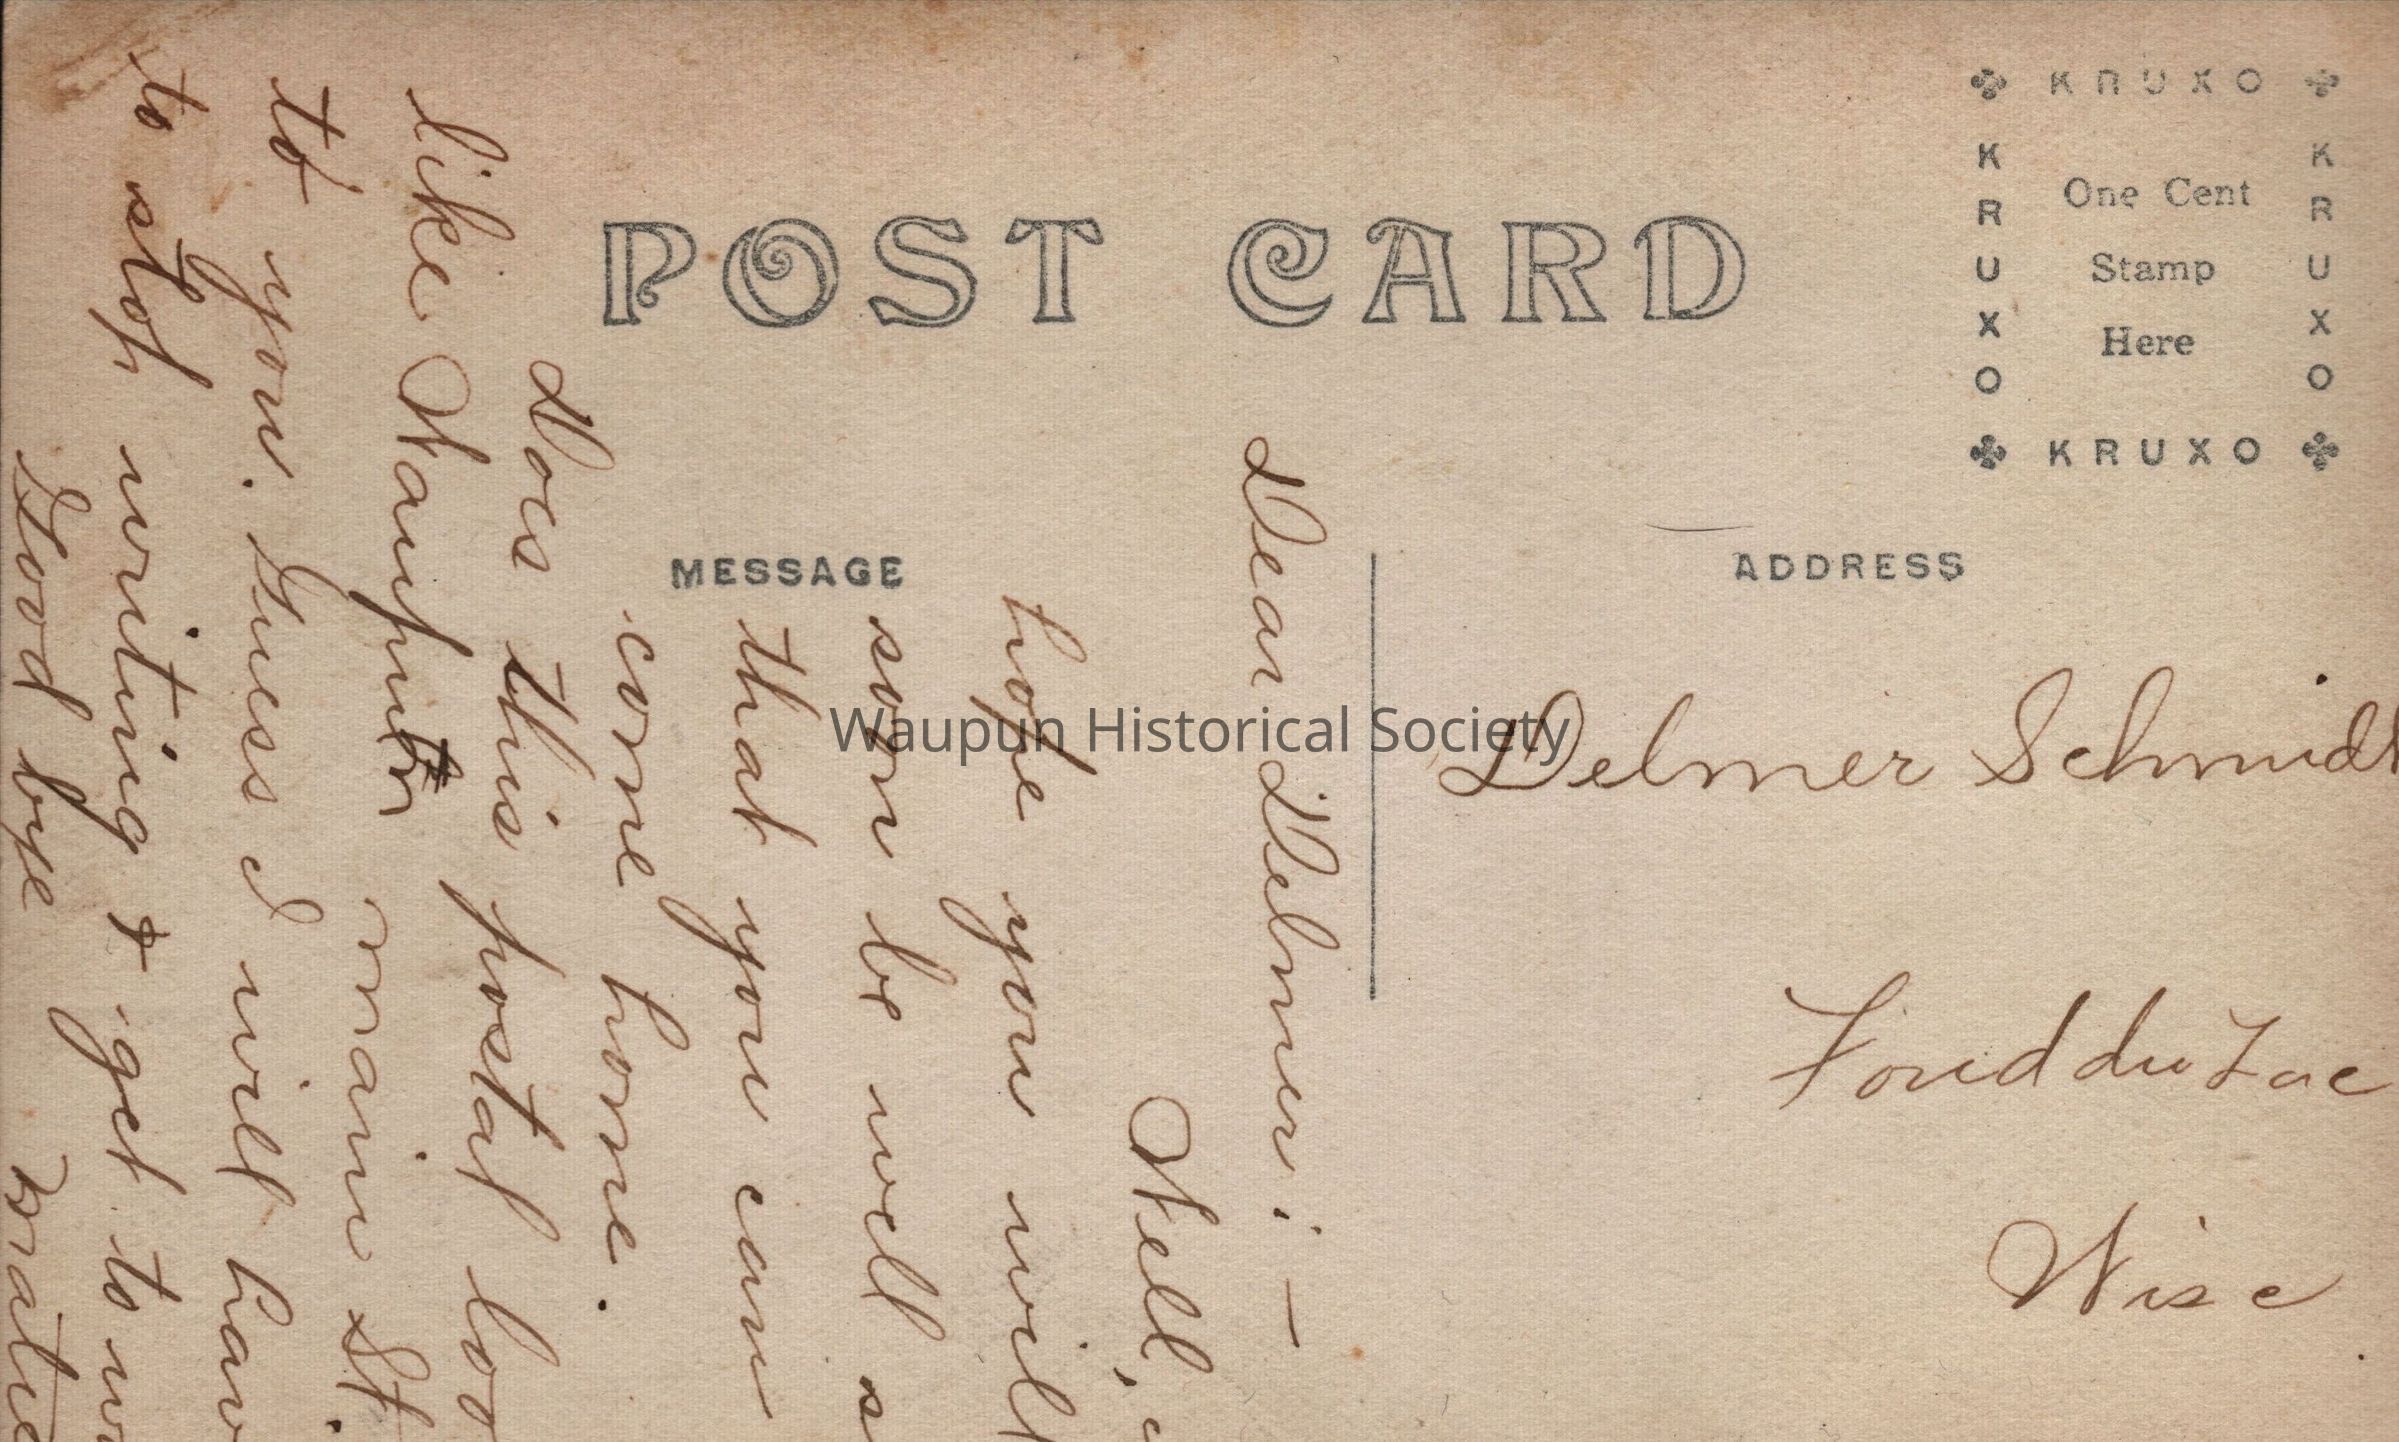 KRUXO
KRUXO
KRUXO
KRUXO
One Cent
Stamp
Here
POST CARD
MESSAGE
ADDRESS
Delmer Schmidt
Fond du Lac
Wisc
Dear Delmer:—
Well,
hope you will
soon be well s
that you can
come home.
Does this postal loo
like Waupun main St.
to you. Guess I will hav
to stop writing + get to wo
Good bye
Waupun Historical Society